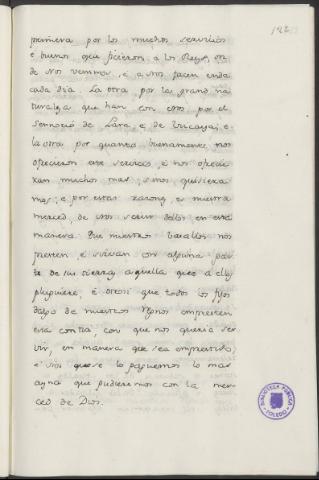 192
primera por los muchos servicios
e buenos que ficieron a los Reyes on
de Nos venimos, é a Nos facen cada
cada dia. La otra por la grand na
turaleza que han con Nos por el
Sennorío de Lara é de Vizcaya; e
la otra por quanto buenamente nos
ofrecieron este servicio, é nos ofrecie
ran mucho mas, si nos quisiera
mos; e por estas razones, es nuestra
merced, de nos servir dellos en esta
manera. Que nuestros Vasallos nos
presten, é sirvan con alguna par
te de sus tierras, aquella que a ellos
ploguiere, é otrosi que todos los fijos
dalgo de nuestros Regnos empresten
esta contia, con que nos quería ser
vir, en manera que sea emprestido;
é Nos que se lo paguemos lo mas
ayna que pudieremos con la mer
ced de Dios.
BIBLIOTECA PUBLICA
TOLEDO